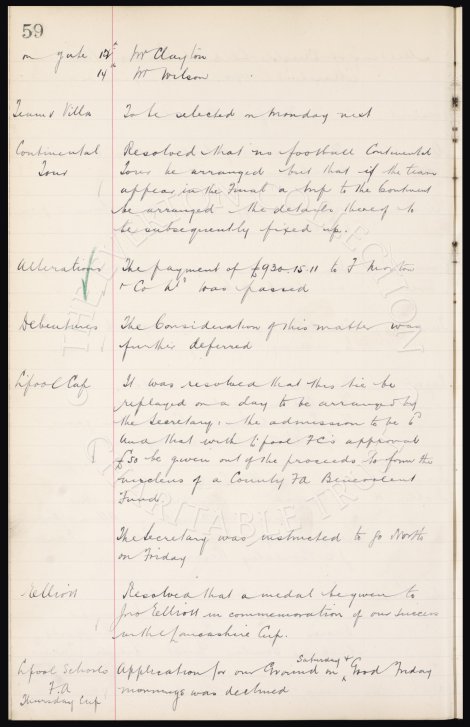 59
on gate 12th Mr Clayton
14th Mr Wilson
Team v Villa To be selected on Monday next
Continental Resolved that no football Continental
Tour Tour be arranged but that if the team
appear in the Final a trip to the Continent
be arranged - the details thereof to
be subsequently fixed up.
Alterations The payment of £930-15-11 to F
& Co Ld was passed
Debentures The Consideration of this matter was
further deferred
L'pool Cup It was resolved that this tie be
replayed on a day to be arranged by
the Secretary: the admission to be 6d
and that with L'pool FC's approval
£50 be given out of the proceeds to form the
nucleus of a County FA Benevolent
Fund.
The Secretary was instructed to go North
on Friday
Elliott Resolved that a medal be given to
Jno Elliott in commemoration of our success
in the Lancashire Cup.
Saturday &
L'pool Schools Application for our Ground on Good Friday
F.A mornings was declined
Thursday Cup
THE EVERTON COLLECTION
CHARITABLE TRUST